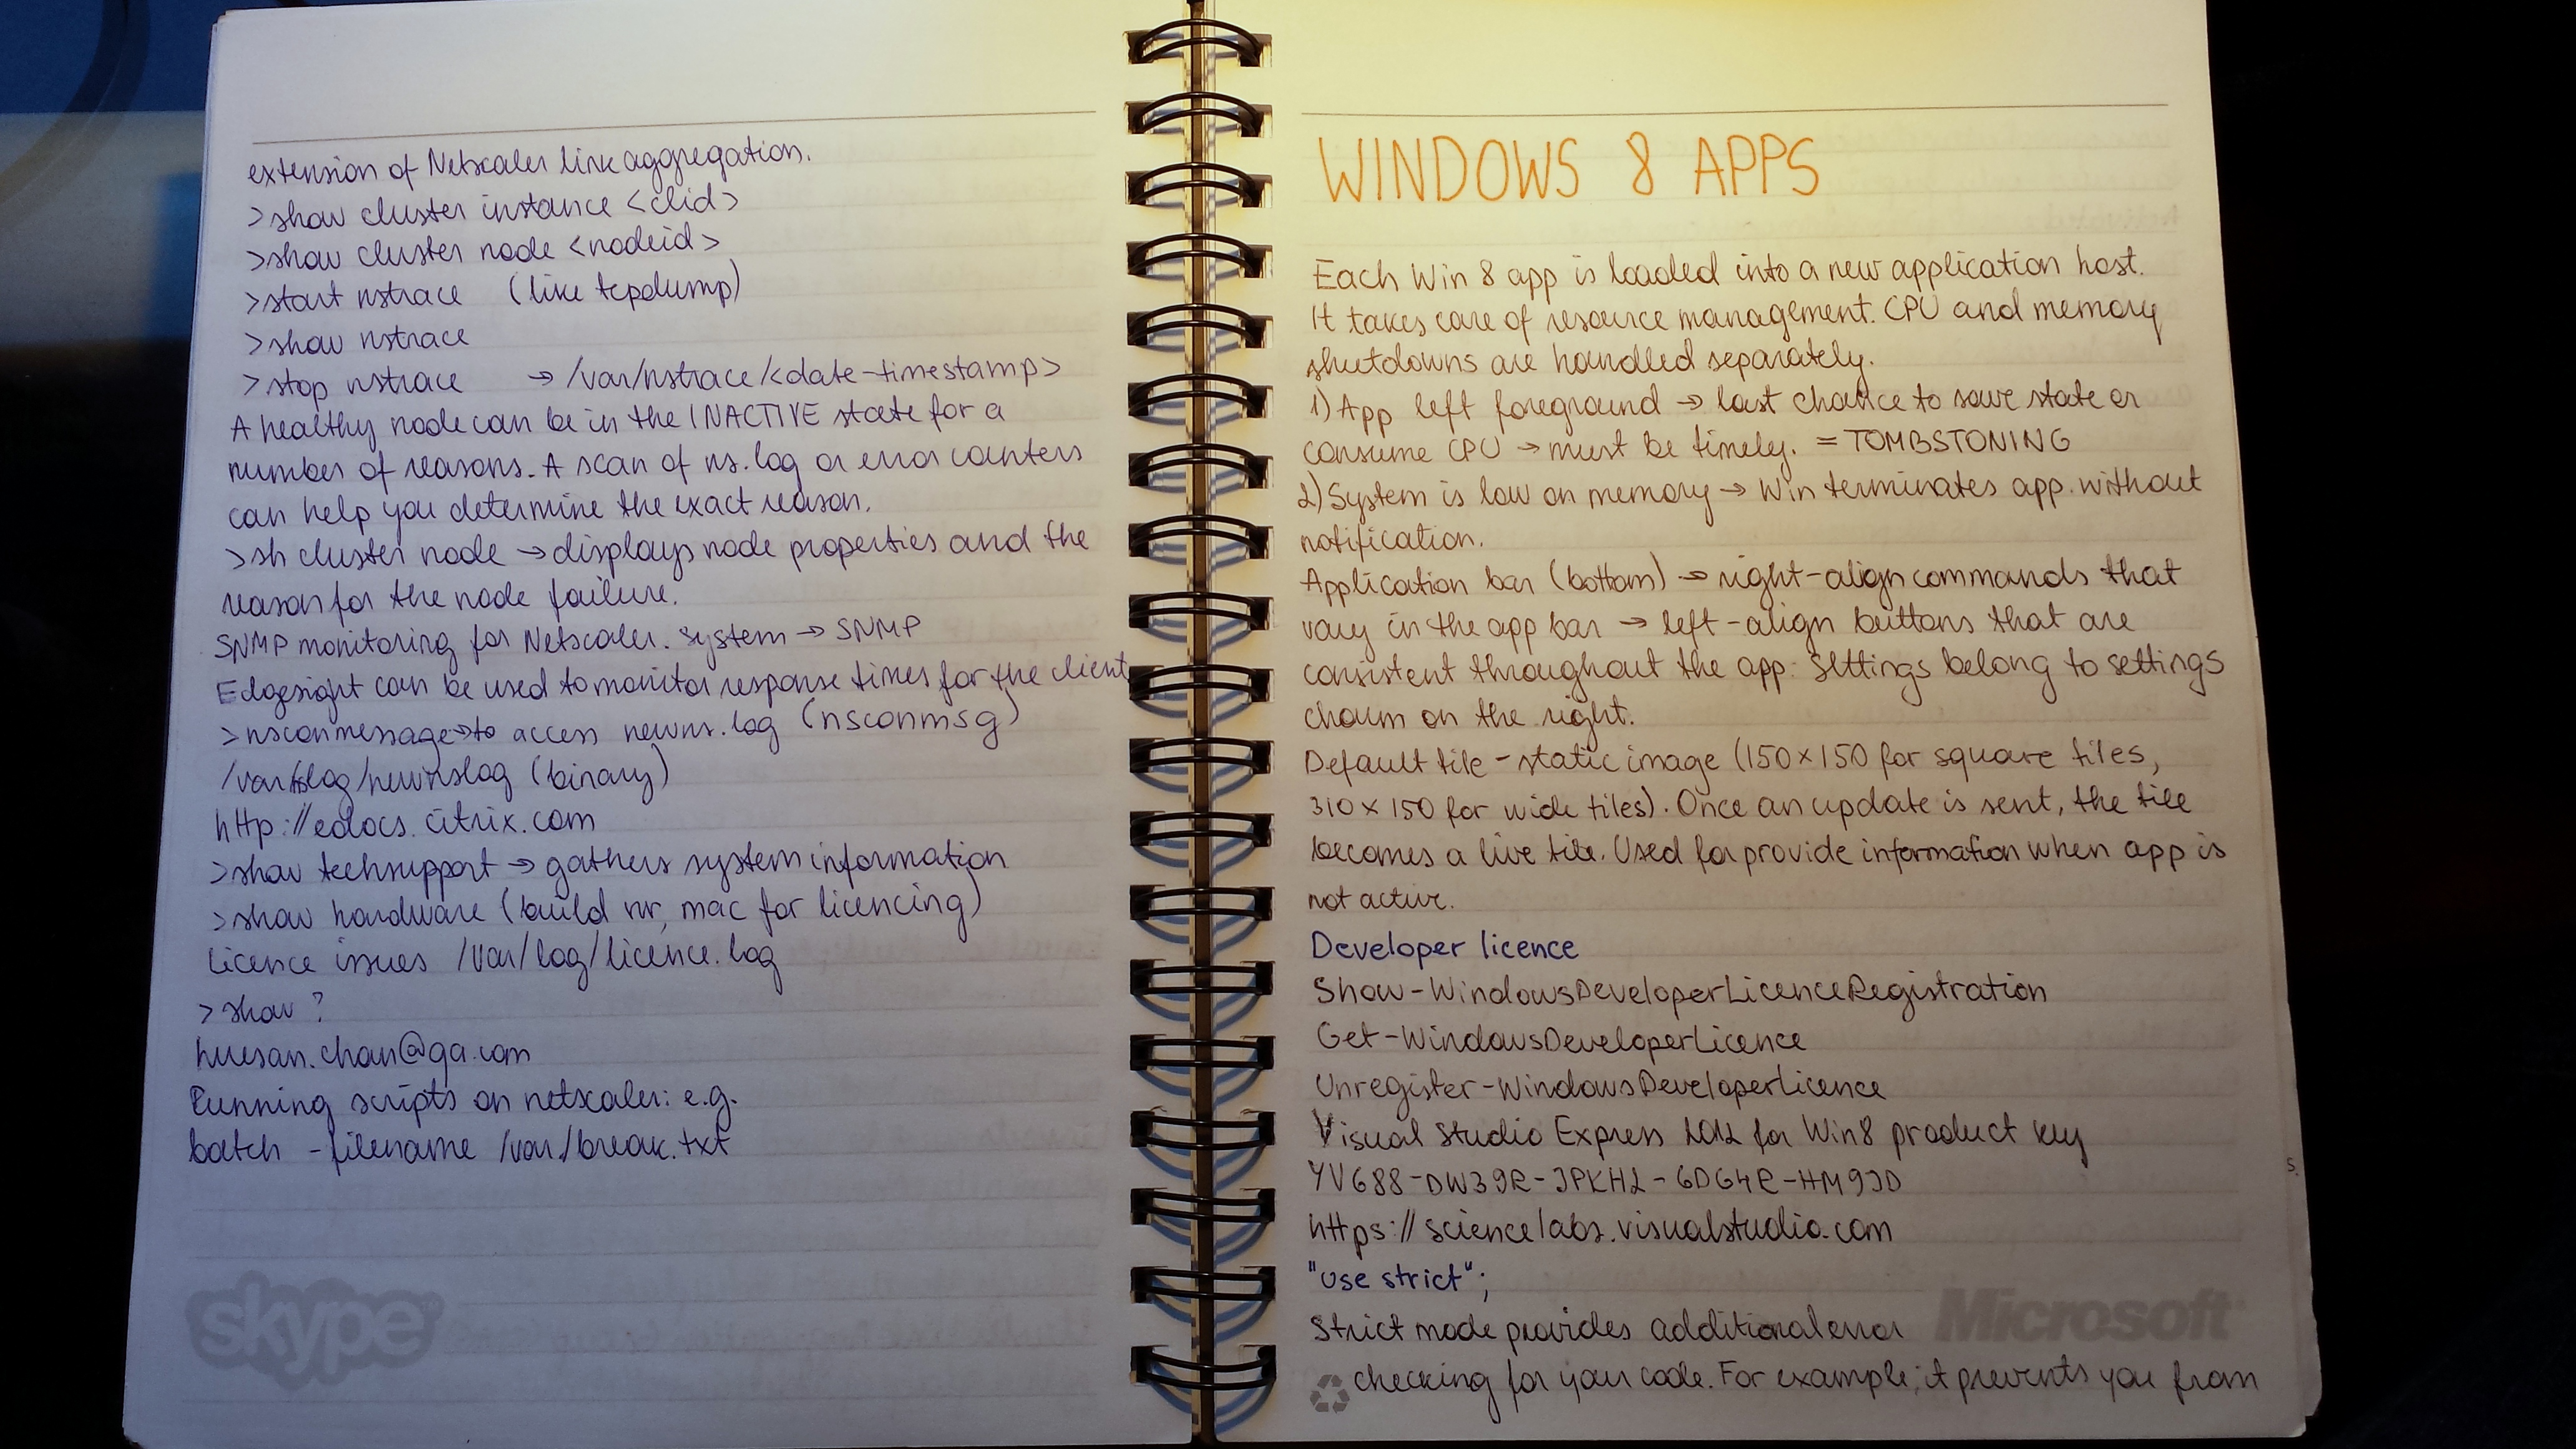 extension of Netscaler link aggregation.
>show cluster instance <clid>
>show cluster node <nodeid>
>start nstrace (like tcpdump)
>show nstrace
>stop nstrace → /var/nstrace/<date-timestamp>
A healthy node can be in the INACTIVE state for a
number of reasons. A scan of ns.log or error counters
can help you determine the exact reason.
>sh cluster node → displays node properties and the
reason for the node failure.
SNMP monitoring for Netscaler. System → SNMP
Edgesight can be used to monitor response times for the client
>nsconmessage → to access newns.log (nsconmsg)
/newnslog (binary)
http://edocs.citrix.com
>show techsupport → gathers system information
>show hardware (build nr, mac for licencing)
Licence issues /var/log/licence.log
>show ?
huesan.chan@qa.com
Running scripts on netscaler: e.g.
batch -filename /var/break.txt
skype
WINDOWS 8 APPS
Each Win 8 app is loaded into a new application host.
It takes care of resource management. CPU and memory
shutdowns are handled separately.
1) App left foreground → last chance to save state or
consume CPU → must be timely. = TOMBSTONING
2) System is low on memory → Win terminates app. without
notification.
Application bar (bottom) → right-align commands that
vary in the app bar → left-align buttons that are
consistent throughout the app. Settings belong to settings
charm on the right.
Default tile - static image (150×150 for square tiles,
310×150 for wide tiles). Once an update is sent, the tile
becomes a live tile. Used for provide information when app is
not active.
Developer licence
Show-WindowsDeveloperLicenceRegistration
Get-WindowsDeveloperLicence
Unregister-WindowsDeveloperLicence
Visual Studio Express 2012 for Win8 product key
YV688-DW39R-JPKH2-6DG4R-HM9JD
https://sciencelabs.visualstudio.com
"use strict";
Strict mode provides additional error
Microsoft
checking for your code. For example, it prevents you from